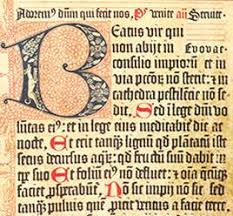 Adorem⁹ dñm qui fecit nos, P̃s Venite añ Seruite.
Beatus vir qui
non abijt in Evovae
consilio impioꝝ et in
via pct̃oꝝ nõ stetit: et in
cathedra pestilẽcie nõ se=
dit, Sed ĩ lege dñi vo=
lũtas ei⁹: et in lege eius meditabit̃ die ac
nocte, Et erit tanq̃ lignũ qd̃ plãtatũ
secus decursus aqꝝ: qd̃ suũ dabit ĩ
tp̃e suo Et foliũ ei⁹ nõ defluet: et oĩa quecũq̃
faciet ꝓsperabũt̃, Nõ sic impij nõ sic: sed
tanq̃ puluis quẽ proicit ventus a facie